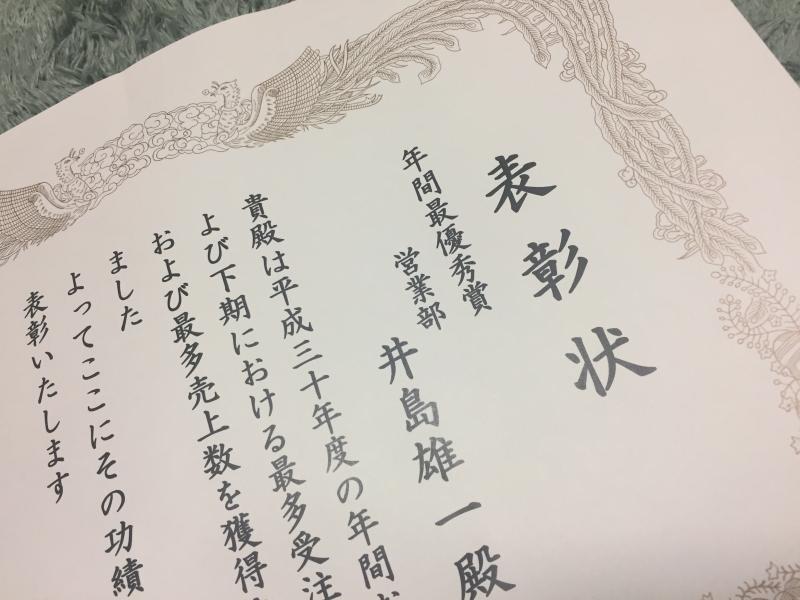 表彰状
年間最優秀賞
営業部
井島雄一殿
貴殿は平成三十年度の年間
よび下期における最多受注
および最多売上数を獲得
ました
よってここにその功績
表彰いたします